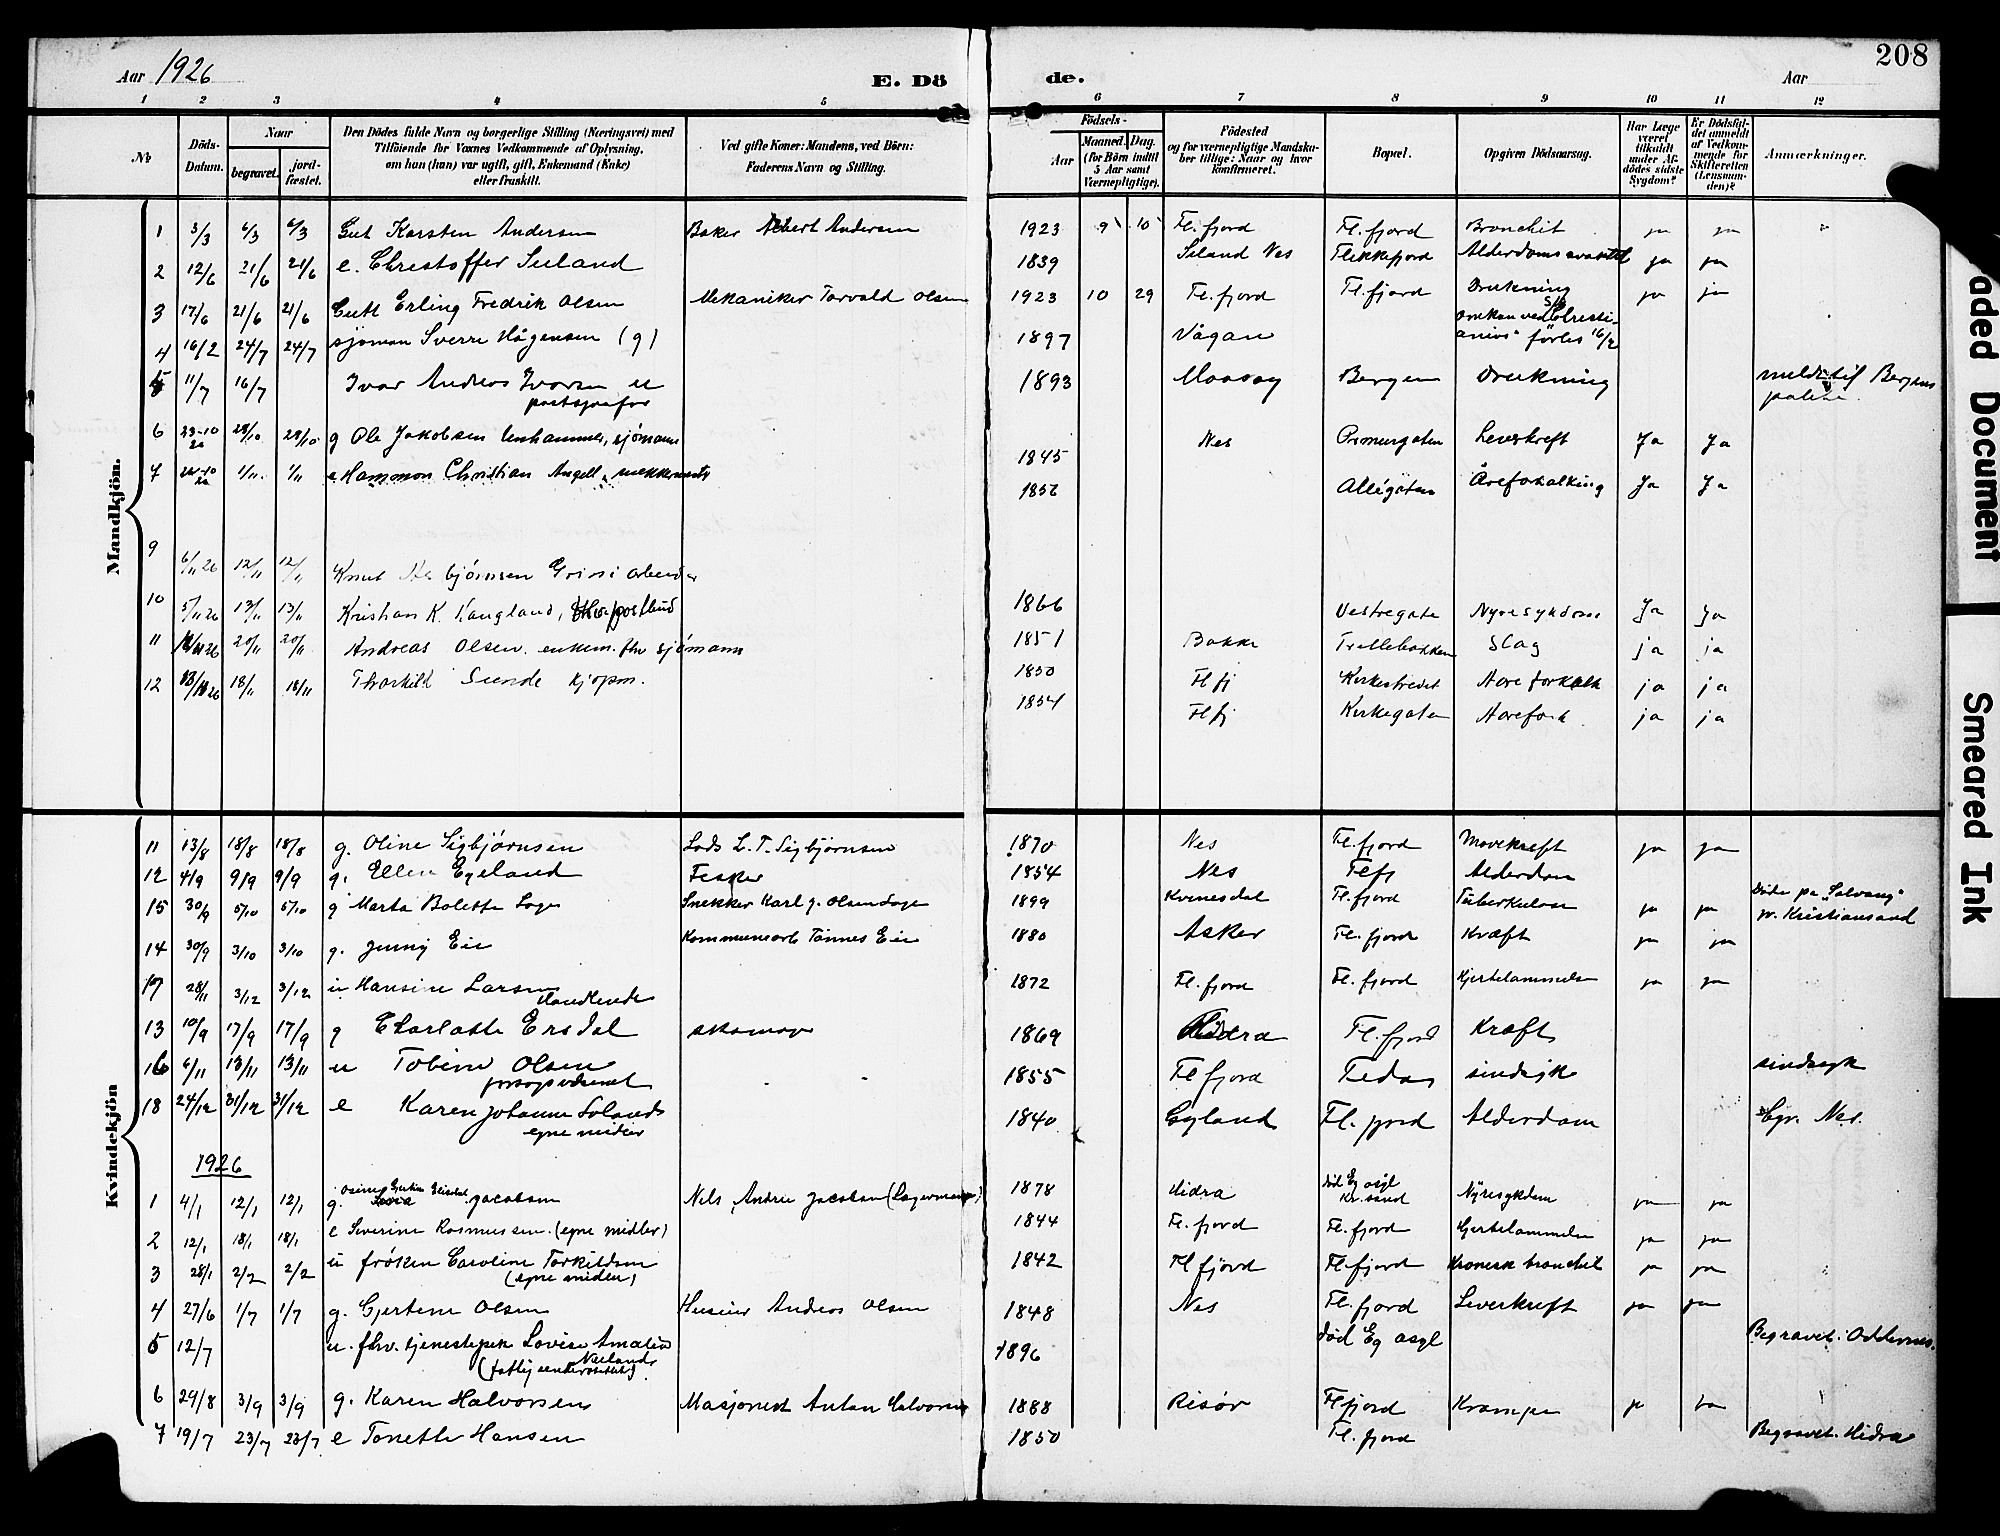 208
Aar 1926
E. Dö
de.
Aar
1 2 3 4 5 6 7 8 9 10 11 12
No
Döds-Datum.
Naar
begravet.
jord-fæstet.
Den Dödes fulde Navn og borgerlige Stilling (Næringsvei) med
Tilföiende for Voxnes Vedkommende af Oplysning,
om han (hun) var ugift, gift, Enkemand (Enke)
eller fraskilt.
Ved gifte Koner: Mandens, ved Börn:
Faderens Navn og Stilling.
Födsels-
Aar
Maaned. Dag.
(for Börn indtil
5 Aar samt
Værnepligtige).
Födested
og for værnepligtige Mandska-
ber tillige: Naar og hvor
konfirmeret.
Bopæl.
Opgiven Dödsaarsag.
Har Læge
været
tilkaldt
under Af-
dödes sidste
Sygdom?
Er Dödsfal-
det anmeldt
af Vedkom-
mende for
Skifteretten
(Lensman-
den)?
Anmærkninger.
Mandkjön.
1 3/3 6/3 6/3 Gut Karsten Andersen Baker Albert Andersen 1923 9 10 Fl.fjord Fl.fjord Bronchit ja ja
2 12/6 21/6 21/6 e. Christoffer Seland 1839 Seland Nes Flekkefjord ja ja
3 17/6 21/6 21/6 Gutt Erling Fredrik Olsen Mekaniker Torvald Olsen 1923 10 29 Fl.fjord Fl.fjord Drukning ja ja
4 16/2 24/7 24/7 sjøman Sverre Hågensen (g) 1897 Vågan
5 11/7 16/7 Ivar Andreas u 1893 Bergen Drukning meldt til Bergens
6 28/10 28/10 g Ole Jakobsen sjømann 1845 Nes Leverkreft Ja Ja
7 1/11. 1/11 Christian Angell Allégaten Åreforkalking Ja Ja
9 6/11 26 12/11 12/11 Knut
10 5/11 26 13/11 13/11 Kristian K. postbud 1866 Vestregate Nyresykdom Ja Ja
11 26 20/11 20/11 Andreas Olsen. enkem. fhv sjømann 1851 Bakke Slag ja ja
12 18/11 18/11 Thorkild Sunde kjøpm. 1850 Fl fj Kirkestredet ja ja
1854 Fl fj Kirkegaten ja ja
Kvindekjön
11 13/8 18/8 18/8 g. Oline Sigbjørnsen Lods L. T. Sigbjørnsen 1870 Nes Fl.fjord Mavekreft ja ja
12 4/9 9/9 9/9 g. Ellen Egeland Fisker 1854 Nes Flfj Alderdom
15 30/9 5/10 5/10 g Marta Bolette Snekker Karl 1899 Kvinesdal Fl.fjord Tuberkulose ja ja Døde på "Solvang"
pr. Kristiansand
14 30/9 3/10 3/10 g. Jenny Eie Kommunearb Tønnes Eie 1880 Asker Fl.fjord Kræft ja ja
17 28/11 3/12 3/12 u Hansine Larsen 1872 Fl.fjord Fl.fjord Hjertelammelse ja ja
13 10/9 17/9 17/9 g Charlotte Ersdal skomager 1869 Hidra Fl.fjord Kræft
16 6/11 13/11 13/11 u Tobine Olsen 1855 Fl fjord Feda sindsyk sindssyk
forsorgsvæsenet
18 24/12 31/12 31/12 e Karen Johanne 1840 Gyland Fl. fjord Alderdom Bgr. Nes.
egne midler
1926
1 4/1 12/1 12/1 g. Jacobsen Nels Andrie Jacobsen 1878 Hidra død Eg asyl
Kr.sand Nyresykdom ja ja
2 12/1 18/1 18/1 e Severine Rasmussen. (egne midler) 1844 Fl.fjord Fl.fjord Hjertelammelse ja ja
3 28/1 2/2 2/2 u frøken Caroline Torkildsen 1842 Fl fjord Fl.fjord Kronisk bronchit ja ja
(egne midler)
4 27/6 1/7 1/7 g. Gjertine Olsen Huseier Andreas Olsen 1848 Nes Fl.fjord Leverkreft ja ja
5 12/7 u. fhv. tjenestepik Lovise Amalia 1896 død Eg asyl Begravet: Oddernes.
6 29/8 3/9 3/9 g. Karen Halvorsen Maskinist Anton Halvorsen 1888 Risør Fl fjord Krampe ja ja
7 19/7 23/7 23/7 e Tonette Hansen 1850 Fl. fjord Begravet. Hidra
aded Document
Smeared Ink